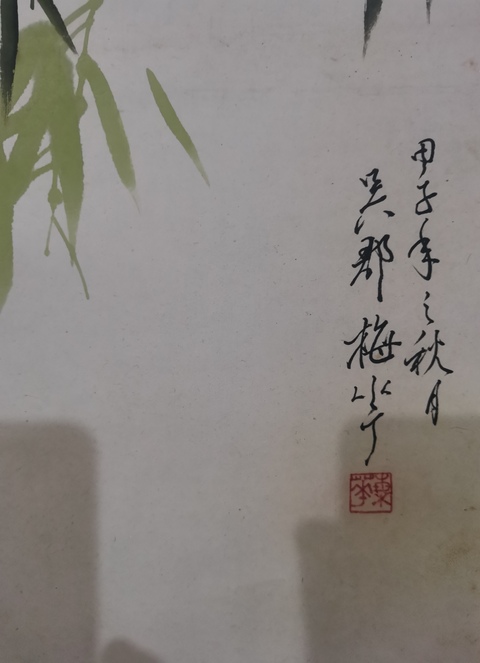 甲子年之秋月
吳郡梅